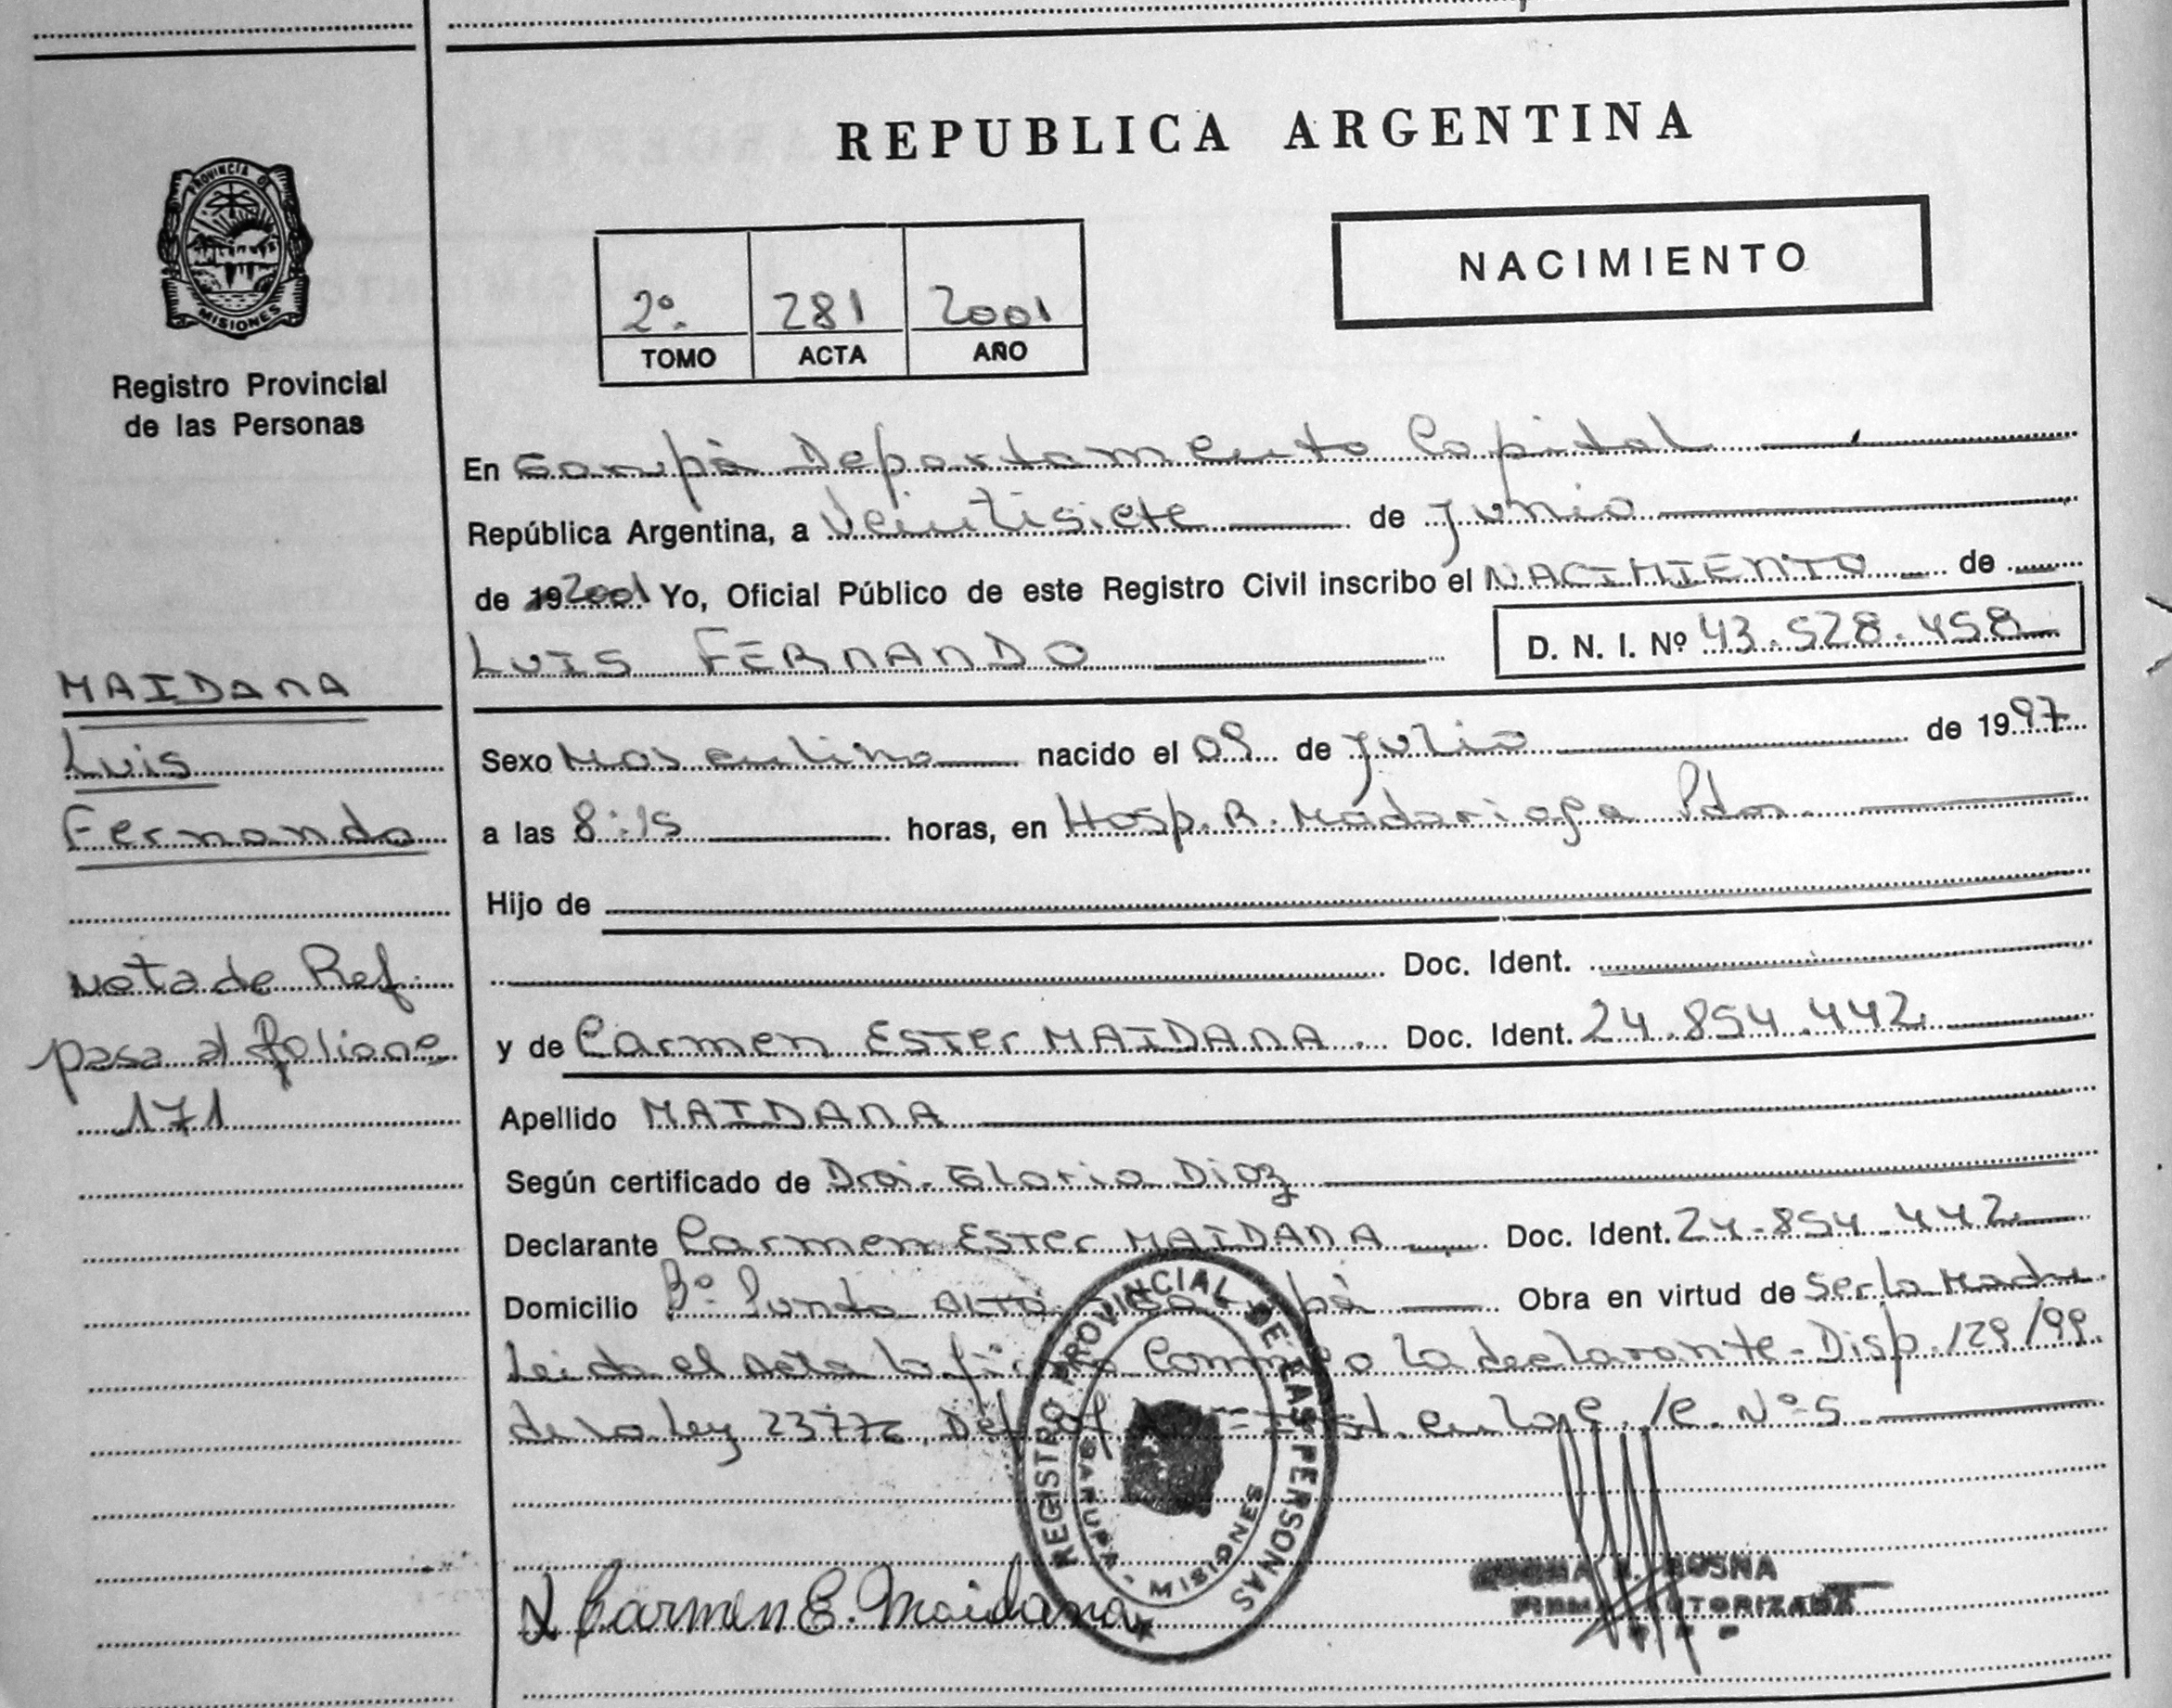 PROVINCIA DE
MISIONES
Registro Provincial
de las Personas
MAIDANA
Luis
Fernando
Nota de Ref.
pasa al folio ne
171
REPUBLICA ARGENTINA
2º 281 2001
TOMO ACTA AÑO
NACIMIENTO
En Garupá Departamento Capital
República Argentina, a Veintisiete de Junio
de 19 2001 Yo, Oficial Público de este Registro Civil inscribo el NACIMIENTO de
LUIS FERNANDO D. N. I. Nº 43.528.458
Sexo Masculino nacido el 09 de Julio de 1997
a las 8:15 horas, en Hosp. R. Madariaga Pdas.
Hijo de
Doc. Ident.
y de Carmen Ester MAIDANA. Doc. Ident. 24.854.442
Apellido MAIDANA
Según certificado de Dra. Gloria Diaz
Declarante Carmen Ester MAIDANA Doc. Ident. 24.854.442
Domicilio Bº Punta Alta Obra en virtud de Ser la Madre
Leida el Acta la firma Conmigo la declarante - Disp. 129/99
de la ley 23776, en la C./C. Nº 5
REGISTRO PROVINCIAL DE LAS PERSONAS
GARUPA - MISIONES
Carmen E. Maidana
BOSNA
FIRMA AUTORIZADA